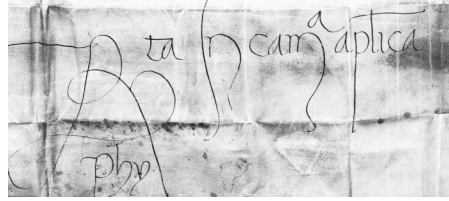 Rta In camᵃ ap̅lica
phy.